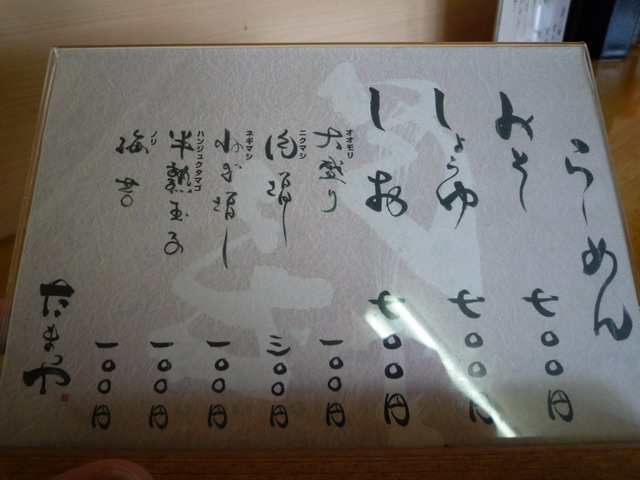 らーめん
みそ 七〇〇円
しょうゆ 七〇〇円
しお 七〇〇円
大盛り オオモリ 一〇〇円
肉増し ニクマシ 三〇〇円
ねぎ増し ネギマシ 一〇〇円
半熟玉子 ハンジュクタマゴ 一〇〇円
海苔 ノリ 一〇〇円